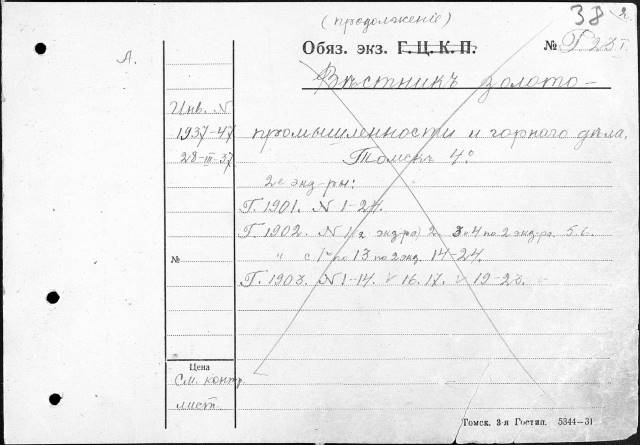 (продолженіе)
38
Обяз. экз. Г. Ц. К. П.
№
А.
Вѣстникъ золото-
Инв. N
1937-47
28-III-37
промышленности и горного дѣла.
Томскъ 4°
2е экз-ры:
Г. 1901. N 1-24.
Г. 1902. N 1 (2 экз-ра) 2. 3 и 4 по 2 экз-ра. 5. 6.
№
" с по 13 по 2 экз. 14-24.
Г. 1903. N 1-14. 16. 17. 19-23.
Цена
См. контр.
лист.
Томск. 3-я Гостип. 5344—31